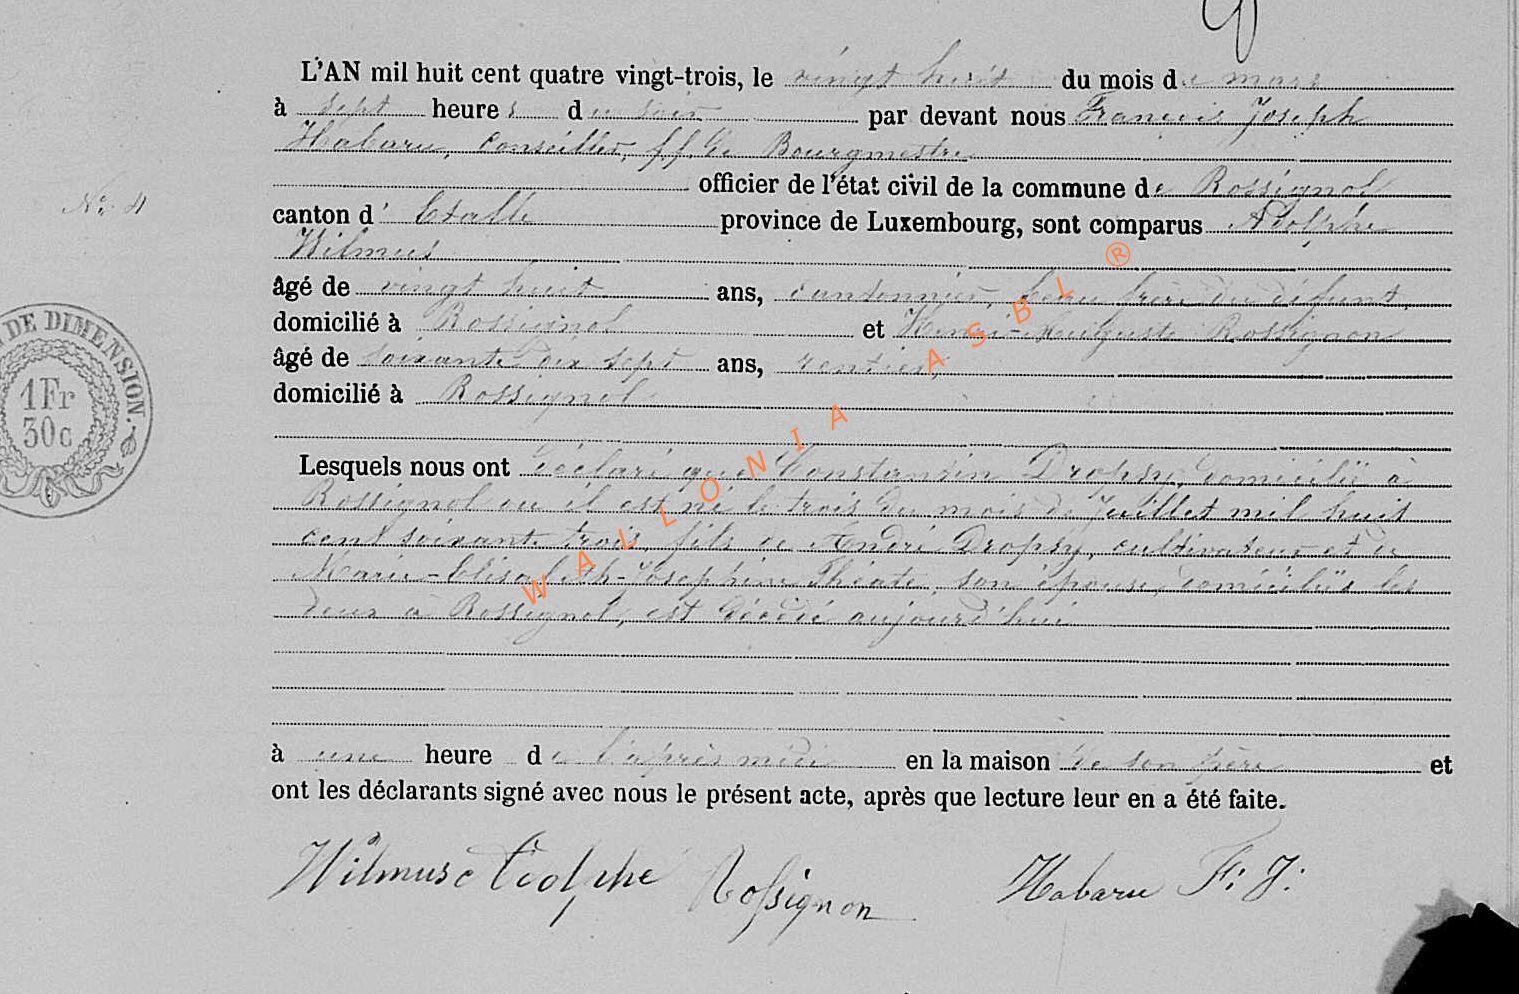 L'AN mil huit cent quatre vingt-trois, le vingt huit du mois de mars
à sept heures du soir par devant nous François Joseph
Habaru, Conseiller, ff. de Bourgmestre
officier de l'état civil de la commune de Rossignol
N° 4
canton d'Etalle province de Luxembourg, sont comparus Adolphe
Wilmus
âgé de vingt huit ans, cantonnier, beau frère du défunt,
domicilié à Rossignol et Henri-Auguste Rossignon
âgé de soixante dix sept ans, rentier,
domicilié à Rossignol
DE DIMENSION.
1Fr
30c
Lesquels nous ont déclaré que Constantin Dropsy, domicilié à
Rossignol où il est né le trois du mois de Juillet mil huit
cent soixante trois, fils de André Dropsy, cultivateur et de
Marie-Elisabeth-Joséphine Théate, son épouse, domiciliés les
deux à Rossignol, est décédé aujourd'hui
à une heure de l'après midi en la maison de son père et
ont les déclarants signé avec nous le présent acte, après que lecture leur en a été faite.
Wilmus Adolphe Rossignon Habaru F. J.
WALLONIA ASBL ®